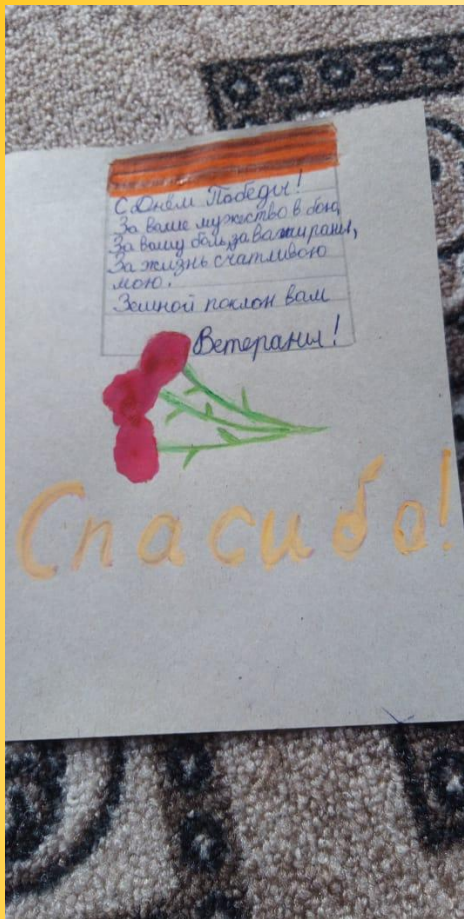 С Днём Победы!
За ваше мужество в бою,
За вашу боль, за ваши раны,
За жизнь счатливою
мою.
Земной поклон вам
Ветераны!
Спасибо!